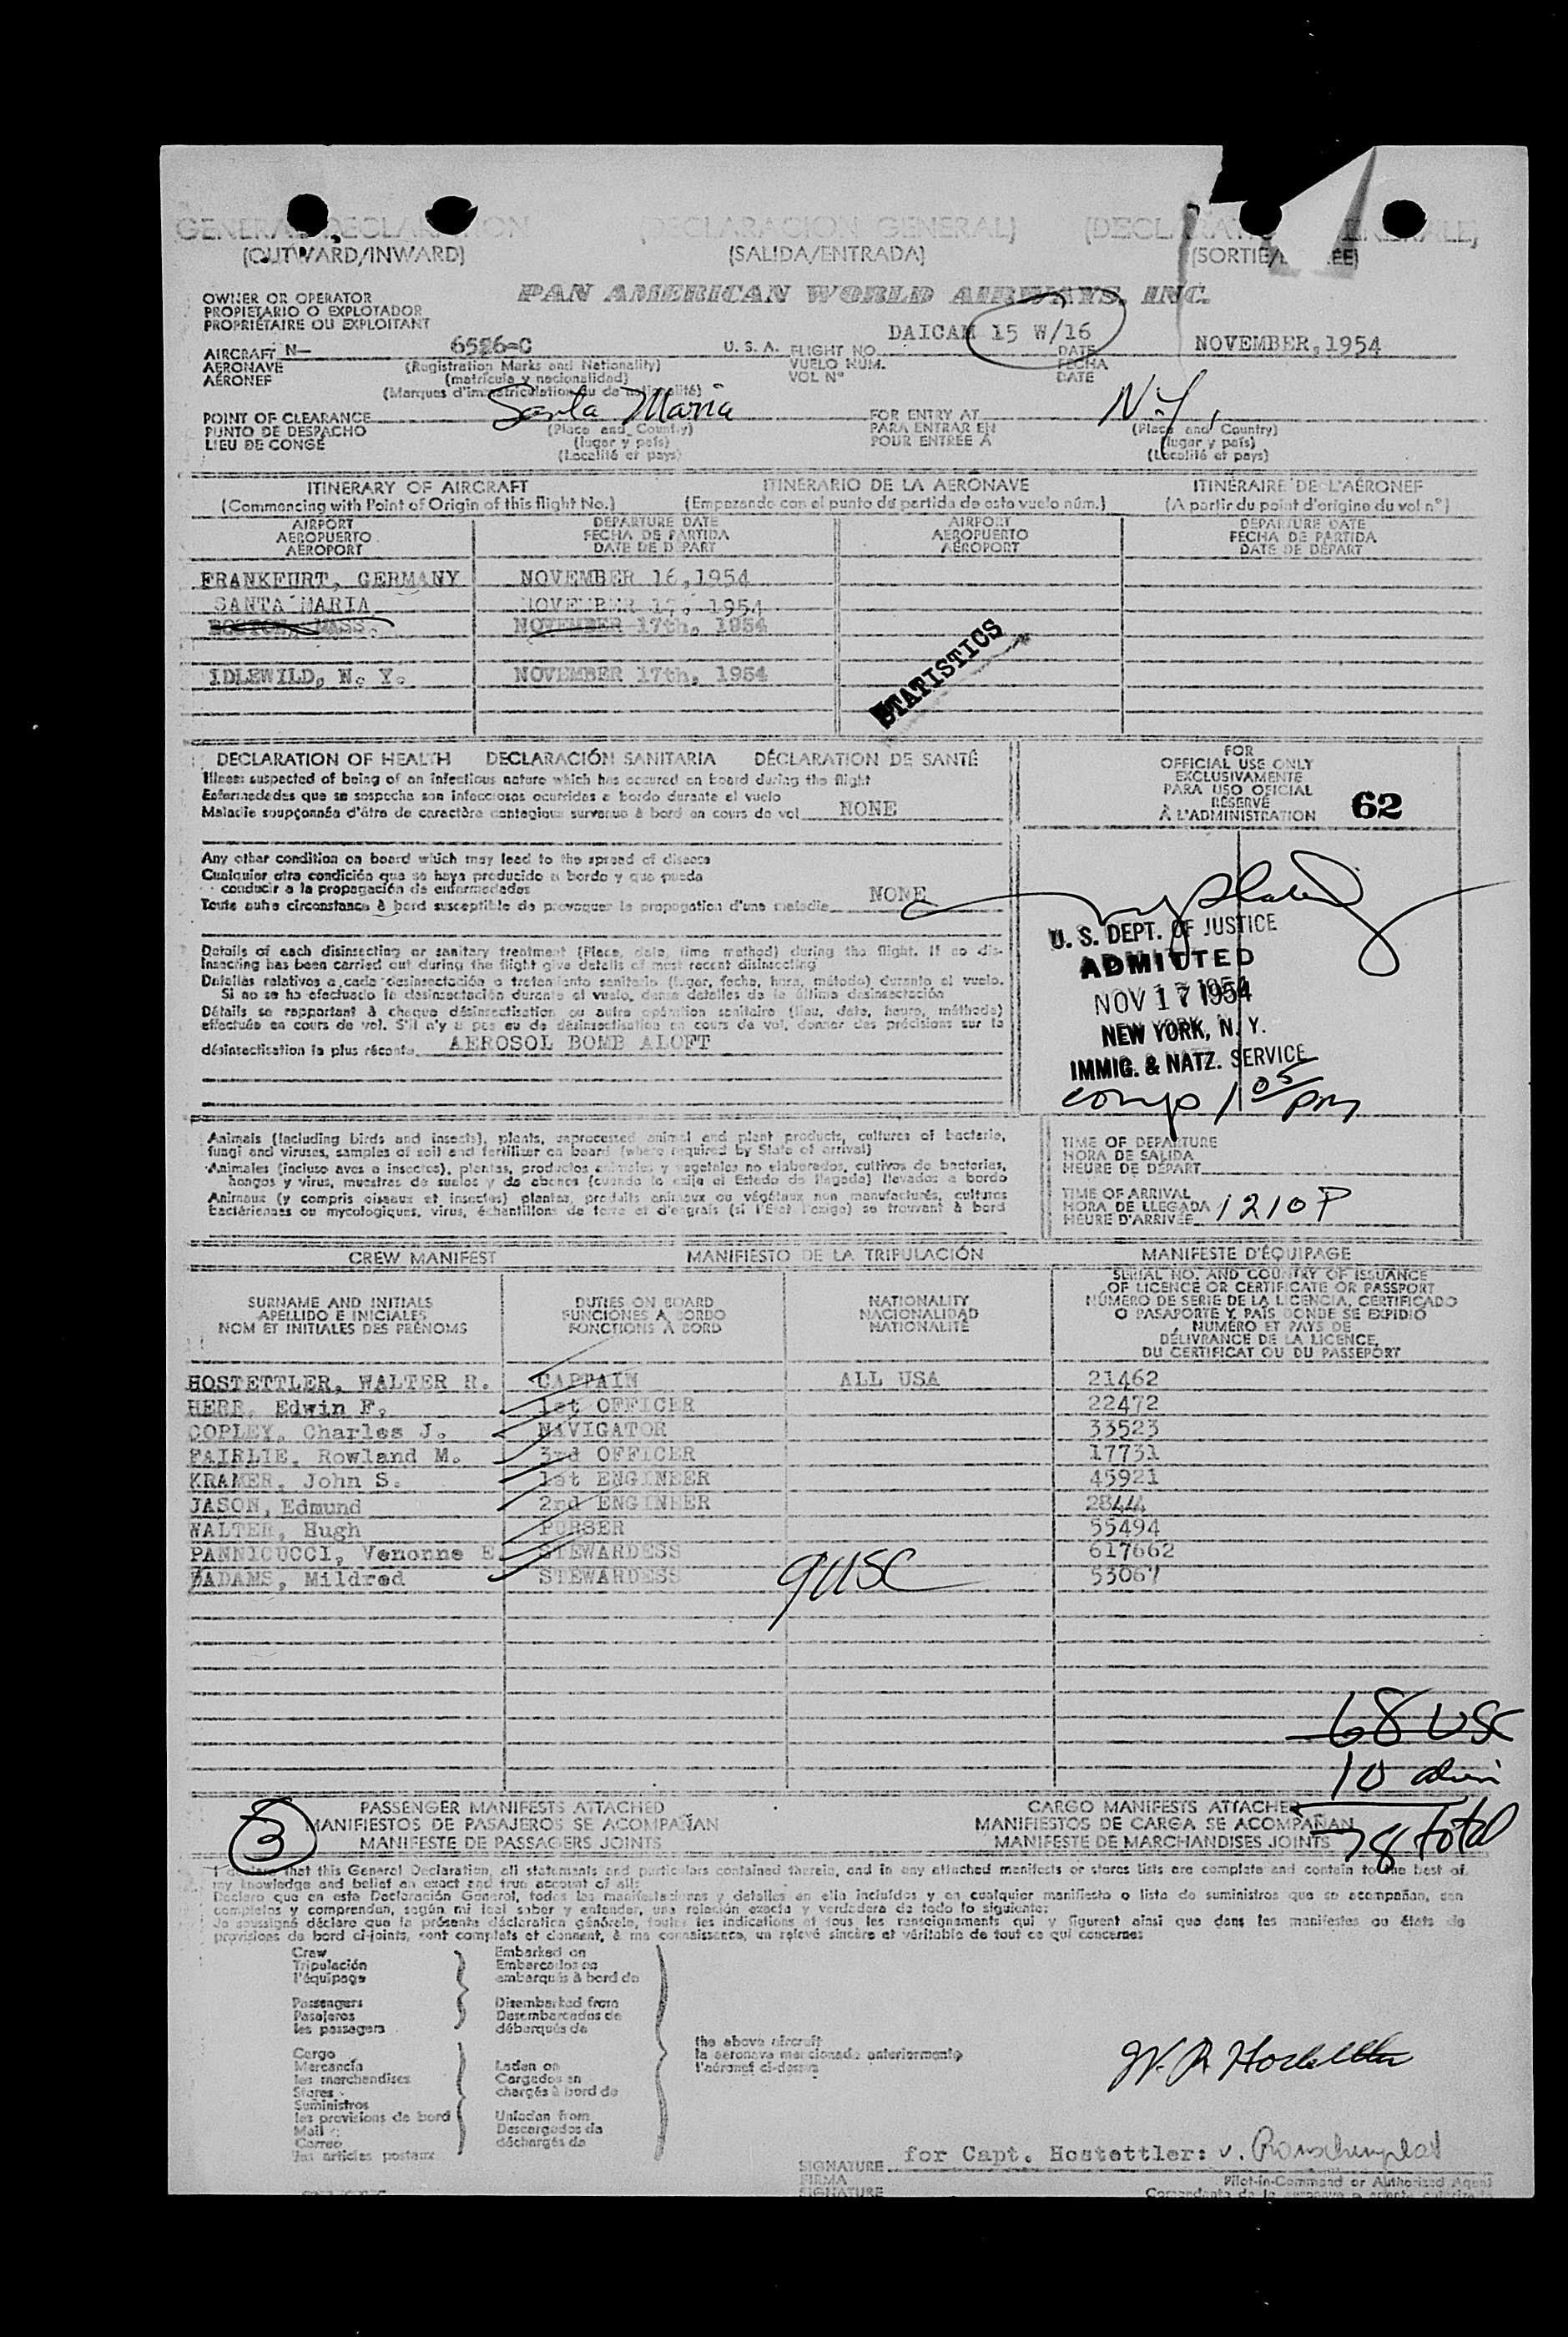 GENERAL DECLARATION (DECLARACION GENERAL) (DECLARATION GENERALE)
(OUTWARD/INWARD) (SALIDA/ENTRADA) (SORTIE/ENTRÉE)
PAN AMERICAN WORLD AIRWAYS, INC.
OWNER OR OPERATOR
PROPIETARIO O EXPLOTADOR
PROPRIÉTAIRE OU EXPLOITANT
AIRCRAFT N— 6526-C U. S. A. FLIGHT NO. DAICAM 15 W/16 DATE NOVEMBER,1954
AERONAVE (Registration Marks and Nationality) VUELO NUM. FECHA
AÉRONEF (matrícula y nacionalidad) VOL Nº DATE
(Marques d'immatriculation ou de nationalité)
POINT OF CLEARANCE Santa Maria FOR ENTRY AT N.Y,
PUNTO DE DESPACHO (Place and Country) PARA ENTRAR EN (Place and Country)
LIEU DE CONGÉ (lugar y país) POUR ENTRÉE A (lugar y país)
(Localité et pays) (Localité et pays)
ITINERARY OF AIRCRAFT ITINERARIO DE LA AERONAVE ITINÉRAIRE DE L'AÉRONEF
(Commencing with Point of Origin of this flight No.) (Empezando con el punto de partida de este vuelo núm.) (A partir du point d'origine du vol nº)
AIRPORT DEPARTURE DATE AIRPORT DEPARTURE DATE
AEROPUERTO FECHA DE PARTIDA AEROPUERTO FECHA DE PARTIDA
AÉROPORT DATE DE DÉPART AÉROPORT DATE DE DÉPART
FRANKFURT, GERMANY NOVEMBER 16,1954
SANTA MARIA NOVEMBER 17, 1954
BOSTON, MASS. NOVEMBER 17th, 1954
STATISTICS
IDLEWILD, N. Y. NOVEMBER 17th, 1954
DECLARATION OF HEALTH DECLARACIÓN SANITARIA DÉCLARATION DE SANTÉ
Illness suspected of being of an infectious nature which has occured on board during the flight
Enfermedades que se sospecha son infecciosas ocurridas a bordo durante el vuelo
Maladie soupçonnée d'être de caractère contagieux survenue à bord en cours de vol NONE
Any other condition on board which may lead to the spread of disease
Cualquier otra condición que se haya producido a bordo y que pueda
conducir a la propagación de enfermedades
Toute autre circonstance à bord susceptible de provoquer la propagation d'une maladie NONE
Details of each disinsecting or sanitary treatment (Place, date, time method) during the flight. If no dis-
insecting has been carried out during the flight give details of most recent disinsecting
Detalles relativos a cada desinsectación o tratamiento sanitario (lugar, fecha, hora, método) durante el vuelo.
Si no se ha efectuado la desinsectación durante el vuelo, dense detalles de la última desinsectación
Détails se rapportant à chaque désinsectisation ou autre opération sanitaire (lieu, date, heure, méthode)
effectuée en cours de vol. S'il n'y a pas eu de désinsectisation en cours de vol, donner des précisions sur la
désinsectisation la plus récente AEROSOL BOMB ALOFT
FOR
OFFICIAL USE ONLY
EXCLUSIVAMENTE
PARA USO OFICIAL
RÉSERVÉ
À L'ADMINISTRATION
62
U. S. DEPT. OF JUSTICE
ADMITTED
NOV 17 1954
NEW YORK, N. Y.
IMMIG. & NATZ. SERVICE
comp 1 05 pm
Animals (including birds and insects), plants, unprocessed animal and plant products, cultures of bacteria,
fungi and viruses, samples of soil and fertilizer on board (where required by State of arrival)
Animales (incluso aves e insectos), plantas, productos animales y vegetales no elaborados, cultivos de bacterias,
hongos y virus, muestras de suelos y de abonos (cuando lo exija el Estado de llegada) llevados a bordo
Animaux (y compris oiseaux et insectes) plantes, produits animaux ou végétaux non manufacturés, cultures
bactériennes ou mycologiques, virus, échantillons de terre et d'engrais (si l'État l'exige) se trouvant à bord
TIME OF DEPARTURE
HORA DE SALIDA
HEURE DE DÉPART
TIME OF ARRIVAL
HORA DE LLEGADA 1210P
HEURE D'ARRIVÉE
CREW MANIFEST MANIFIESTO DE LA TRIPULACIÓN MANIFESTE D'ÉQUIPAGE
SURNAME AND INITIALS
APELLIDO E INICIALES
NOM ET INITIALES DES PRÉNOMS
DUTIES ON BOARD
FUNCIONES A BORDO
FONCTIONS À BORD
NATIONALITY
NACIONALIDAD
NATIONALITÉ
SERIAL NO. AND COUNTRY OF ISSUANCE
OF LICENCE OR CERTIFICATE OR PASSPORT
NÚMERO DE SERIE DE LA LICENCIA, CERTIFICADO
O PASAPORTE Y PAÍS DONDE SE EXPIDIÓ
NUMÉRO ET PAYS DE
DÉLIVRANCE DE LA LICENCE,
DU CERTIFICAT OU DU PASSEPORT
HOSTETTLER, WALTER R. CAPTAIN ALL USA 21462
HERR, Edwin F. 1st OFFICER 22472
COPLEY, Charles J. NAVIGATOR 33523
FAIRLIE, Rowland M. 3rd OFFICER 17731
KRAMER, John S. 1st ENGINEER 45921
JASON, Edmund 2nd ENGINEER 2844
WALTER, Hugh PURSER 55494
PANNICUCCI, Venonne E STEWARDESS 617662
ADAMS, Mildred STEWARDESS 53067
9 USC
68 USC
10 alien
78 total
3
PASSENGER MANIFESTS ATTACHED CARGO MANIFESTS ATTACHED
MANIFIESTOS DE PASAJEROS SE ACOMPAÑAN MANIFIESTOS DE CARGA SE ACOMPAÑAN
MANIFESTE DE PASSAGERS JOINTS MANIFESTE DE MARCHANDISES JOINTS
I declare that this General Declaration, all statements and particulars contained therein, and in any attached manifests or stores lists are complete and contain to the best of
my knowledge and belief an exact and true account of all:
Declaro que en esta Declaración General, todas las manifestaciones y detalles en ella incluídos y en cualquier manifiesto o lista de suministros que se acompañan, son
completos y comprendan, según mi leal saber y entender, una relación exacta y verdadera de todo lo siguiente:
Je soussigné déclare que la présente déclaration générale, toutes les indications et tous les renseignements qui y figurent ainsi que dans les manifestes ou états de
provisions de bord ci-joints, sont complets et donnent, à ma connaissance, un relevé sincère et véritable de tout ce qui concerne:
Crew Embarked on
Tripulación Embarcados en
l'équipage embarqués à bord de
Passengers Disembarked from
Pasajeros Desembarcados de
les passagers débarqués de
Cargo
Mercancía Laden on
les marchandises Cargados en
Stores chargés à bord de
Suministros
les provisions de bord Unladen from
Mail Descargados de
Correo déchargés de
les articles postaux
the above aircraft
la aeronave mencionada anteriormente
l'aéronef ci-dessus
W. R Hostettler
for Capt. Hostettler: v.
SIGNATURE
FIRMA Pilot-in-Command or Authorized Agent
SIGNATURE